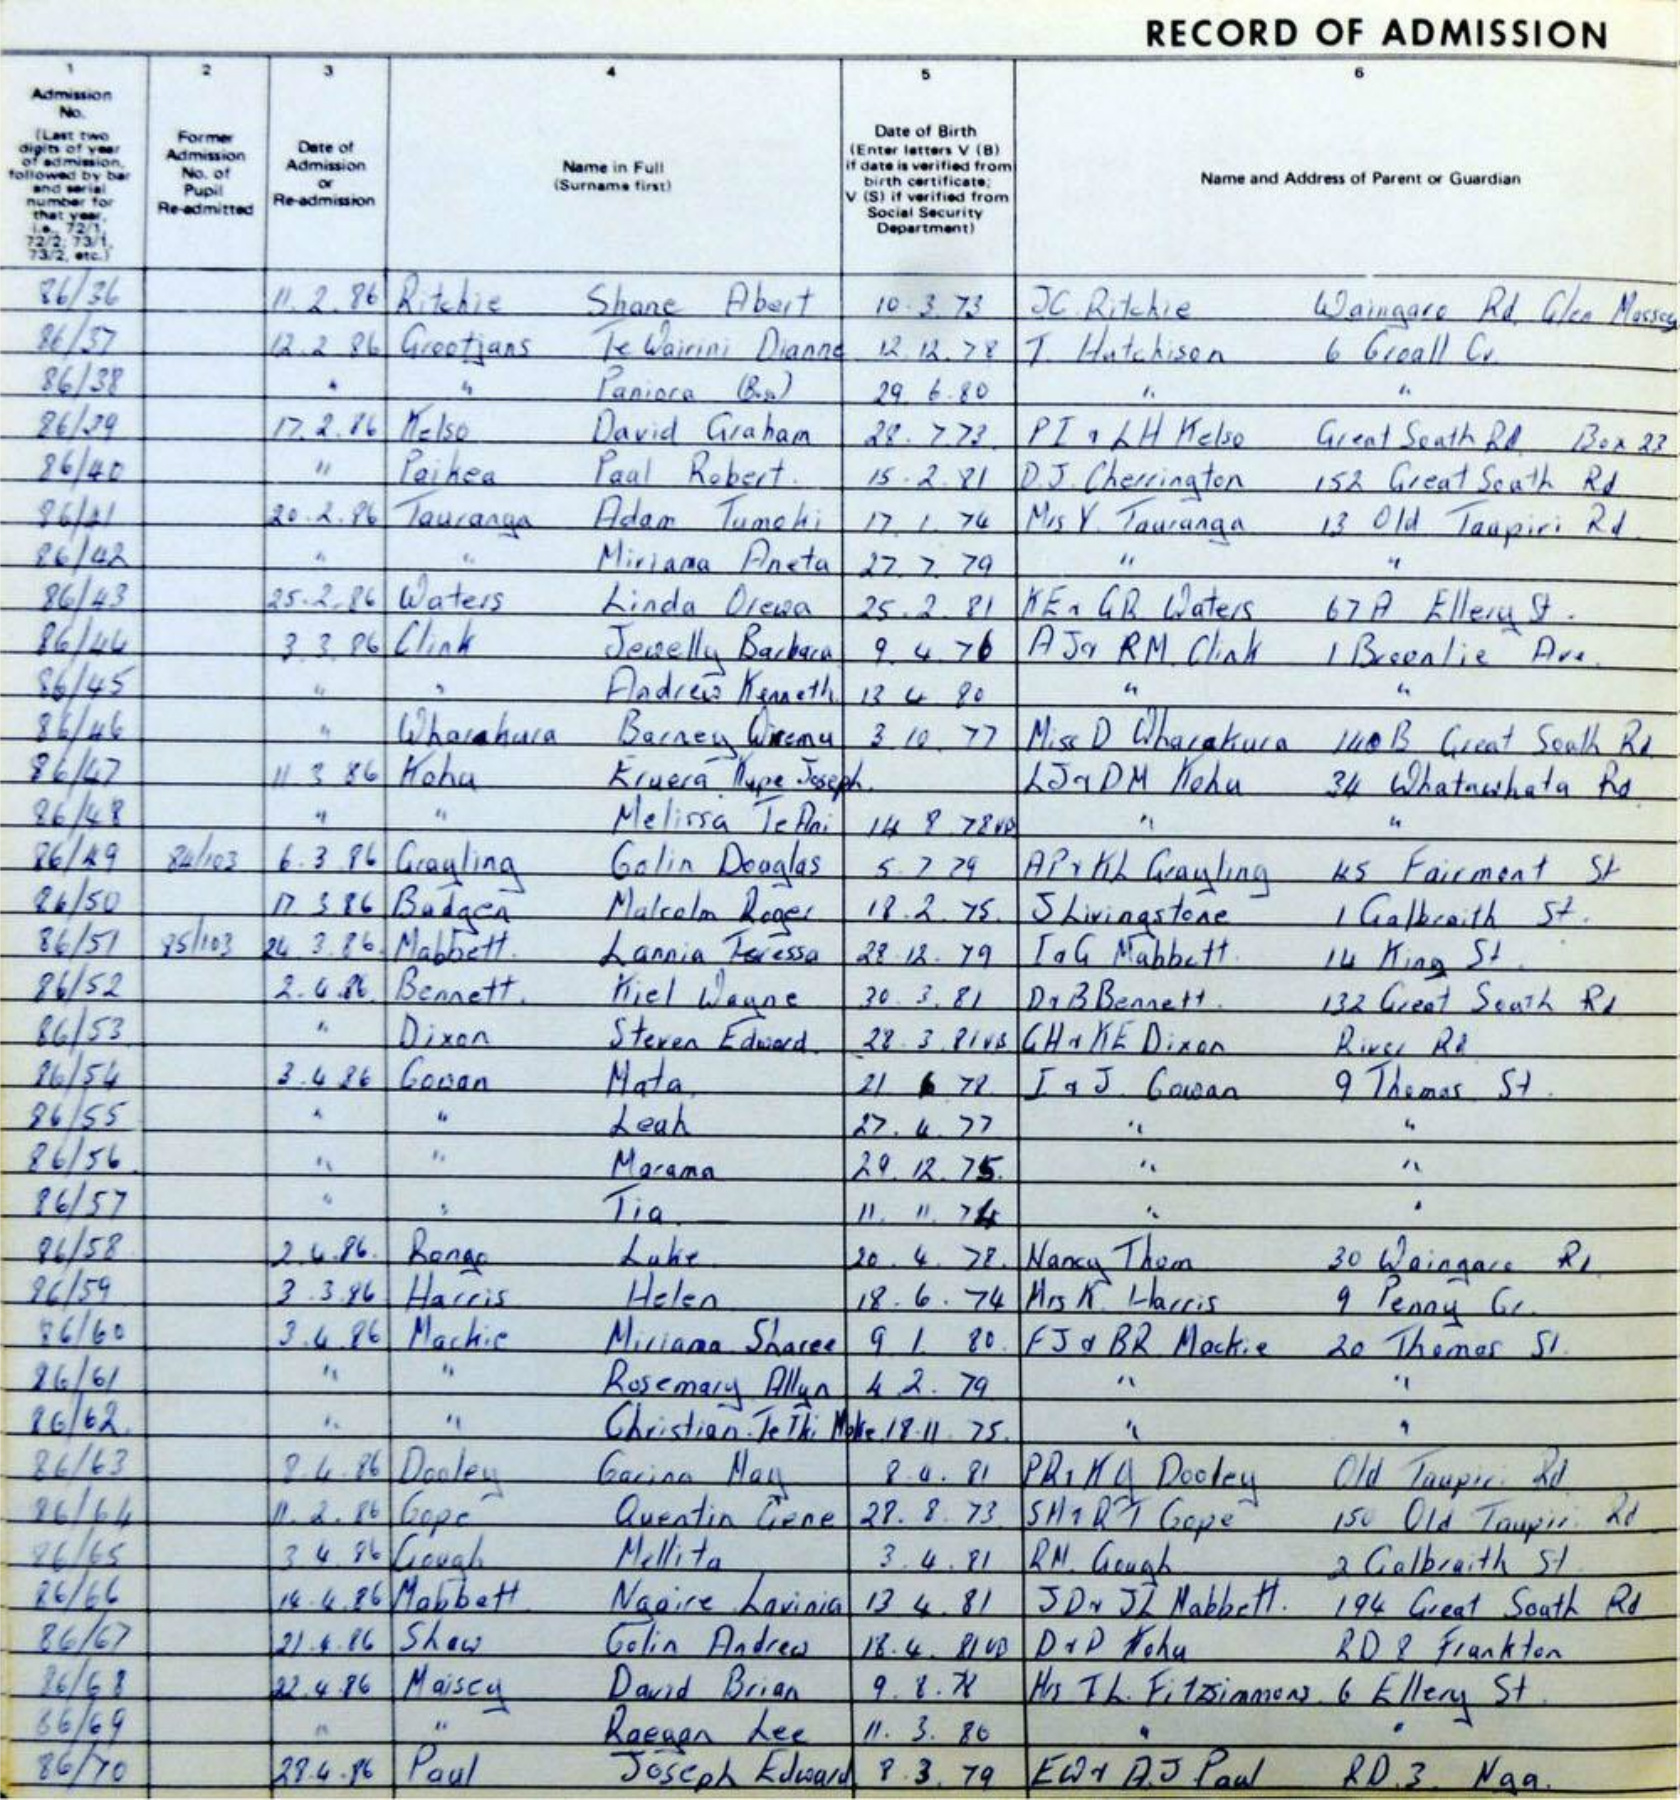 RECORD OF ADMISSION
1 2 3 4 5 6
Admission No. (Last two digits of year of admission, followed by bar and serial number for that year, i.e., 72/1, 72/2; 73/1, 73/2, etc.)
Former Admission No. of Pupil Re-admitted
Date of Admission or Re-admission
Name in Full (Surname first)
Date of Birth (Enter letters V (B) if date is verified from birth certificate; V (S) if verified from Social Security Department)
Name and Address of Parent or Guardian
86/36 11.2.86 Ritchie Shane Abert 10.3.73 JC Ritchie Waingaro Rd Glen Massey
86/37 12.2.86 Grootjans Te Wairini Dianne 12.12.78 T. Hutchison 6 Croall Cr.
86/38 " " Paniora 29.6.80 " "
86/39 17.2.86 Kelso David Graham 28.7.73 PI & LH Kelso Great South Rd Box 23
86/40 " Paikea Paul Robert. 15.2.81 D.J. Cherrington 152 Great South Rd
86/41 20.2.86 Tauranga Adam Tumoki 17.1.74 Mrs Y. Tauranga 13 Old Taupiri Rd
86/42 " " Miriama Aneta 27.7.79 " "
86/43 25.2.86 Waters Linda Orewa 25.2.81 KE & GR Waters 67A Ellery St.
86/44 3.3.86 Clink Jewelly Barbara 9.4.76 AJ & RM Clink 1 Brownlie Ave.
86/45 " " Andrew Kenneth 13 4 80 " "
86/46 " Wharakura Barney Wiremu 3.10.77 Miss D Wharakura 140B Great South Rd
86/47 11 3 86 Kohu Eruera Kupe Joseph. LJ & DM Kohu 34 Whatawhata Rd
86/48 " " Melissa Te Ani 14 8 78 VB " "
86/49 84/103 6.3.86 Grayling Colin Douglas 5.7.79 AP & KL Grayling 45 Fairmont St
86/50 17.3.86 Budgen Malcolm Roger 18.2.75. J Livingstone 1 Galbraith St.
86/51 85/103 24.3.86. Mabbett. Lannia Teressa 28.12.79 I & G Mabbett. 14 King St.
86/52 2.4.86. Bennett. Kiel Wayne 30.3.81 D & B Bennett. 132 Great South Rd
86/53 " Dixon Steven Edward. 28.3.81 VB GH & KE Dixon River Rd
86/54 3.4.86 Gowan Mata 21 6 78. I & J. Gowan 9 Thomas St.
86/55 " " Leah 27.4.77 " "
86/56 " " Marama 29.12.75. " "
86/57 " " Tia 11.11.74 " "
86/58 2.4.86. Rongo Luke 20.4.78. Nancy Thom 30 Waingaro Rd.
86/59 3.3.86 Harris Helen 18.6.74 Mrs K. Harris 9 Penny Cr.
86/60 3.4.86 Mackie Miriama Sharee 9 1. 80. FJ & BR Mackie 20 Thomas St.
86/61 " " Rosemary Allyn 4.2.79 " "
86/62. " " Christian Te Iki 18.11.75. " "
86/63 8.4.86 Dooley Carina May 8.4.81 Dooley Old Taupiri Rd
86/64 11.2.86 Cope Quentin Gene 28.8.73 Cope 150 Old Taupiri Rd
86/65 3 4.86 Gough Mellita 3.4.81 RM. Gough 2 Galbraith St.
86/66 14.4.86 Mabbett Ngaire Lavinia 13 4.81 JD & JL Mabbett. 194 Great South Rd
86/67 21.4.86 Shaw Colin Andrew 18.4.81 VB D & D Kohu RD 8 Frankton
86/68 22.4.86 Maisey David Brian 9.8.78 Mrs T.L. Fitzsimmons 6 Ellery St.
86/69 " " Raegan Lee 11.3.80 " "
86/70 28.4.86 Paul Joseph Edward 8.3.79 EW & A.J Paul RD.3. Nga.